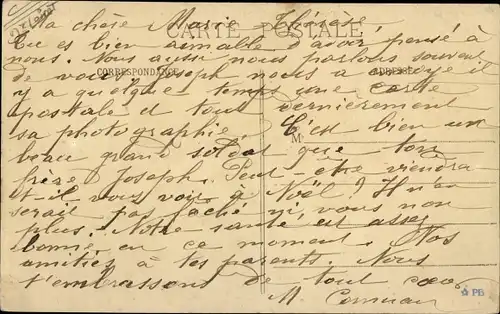 Ma chère Marie-Thérèse,
CARTE POSTALE
Tu es bien aimable d'avoir pensé à
nous. Nous aussi nous parlons souvent
de vous. Joseph nous a envoyé il
CORRESPONDANCE
ADRESSE
y a quelque temps une carte
postale et tout dernièrement
sa photographie. C'est bien un
M
beau grand soldat que ton
frère Joseph. Peut-être viendra
t-il vous voir à Noël? Il n'en
serait pas fâché ni vous non
plus. Notre santé est assez
bonne en ce moment. Nos
amitiés à tes parents. Nous
t'embrassons de tout cœur
M.
PB